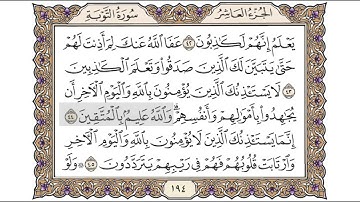 الجزء العاشر
سورة التوبة
يعلم إنهم لكاذبون ٤٢ عفا الله عنك لم أذنت لهم
حتى يتبين لك الذين صدقوا وتعلم الكاذبين
٤٣ لا يستأذنك الذين يؤمنون بالله واليوم الآخر أن
يجاهدوا بأموالهم وأنفسهم والله عليم بالمتقين ٤٤
إنما يستأذنك الذين لا يؤمنون بالله واليوم الآخر
وارتابت قلوبهم فهم في ريبهم يترددون ٤٥ ولو
١٩٤